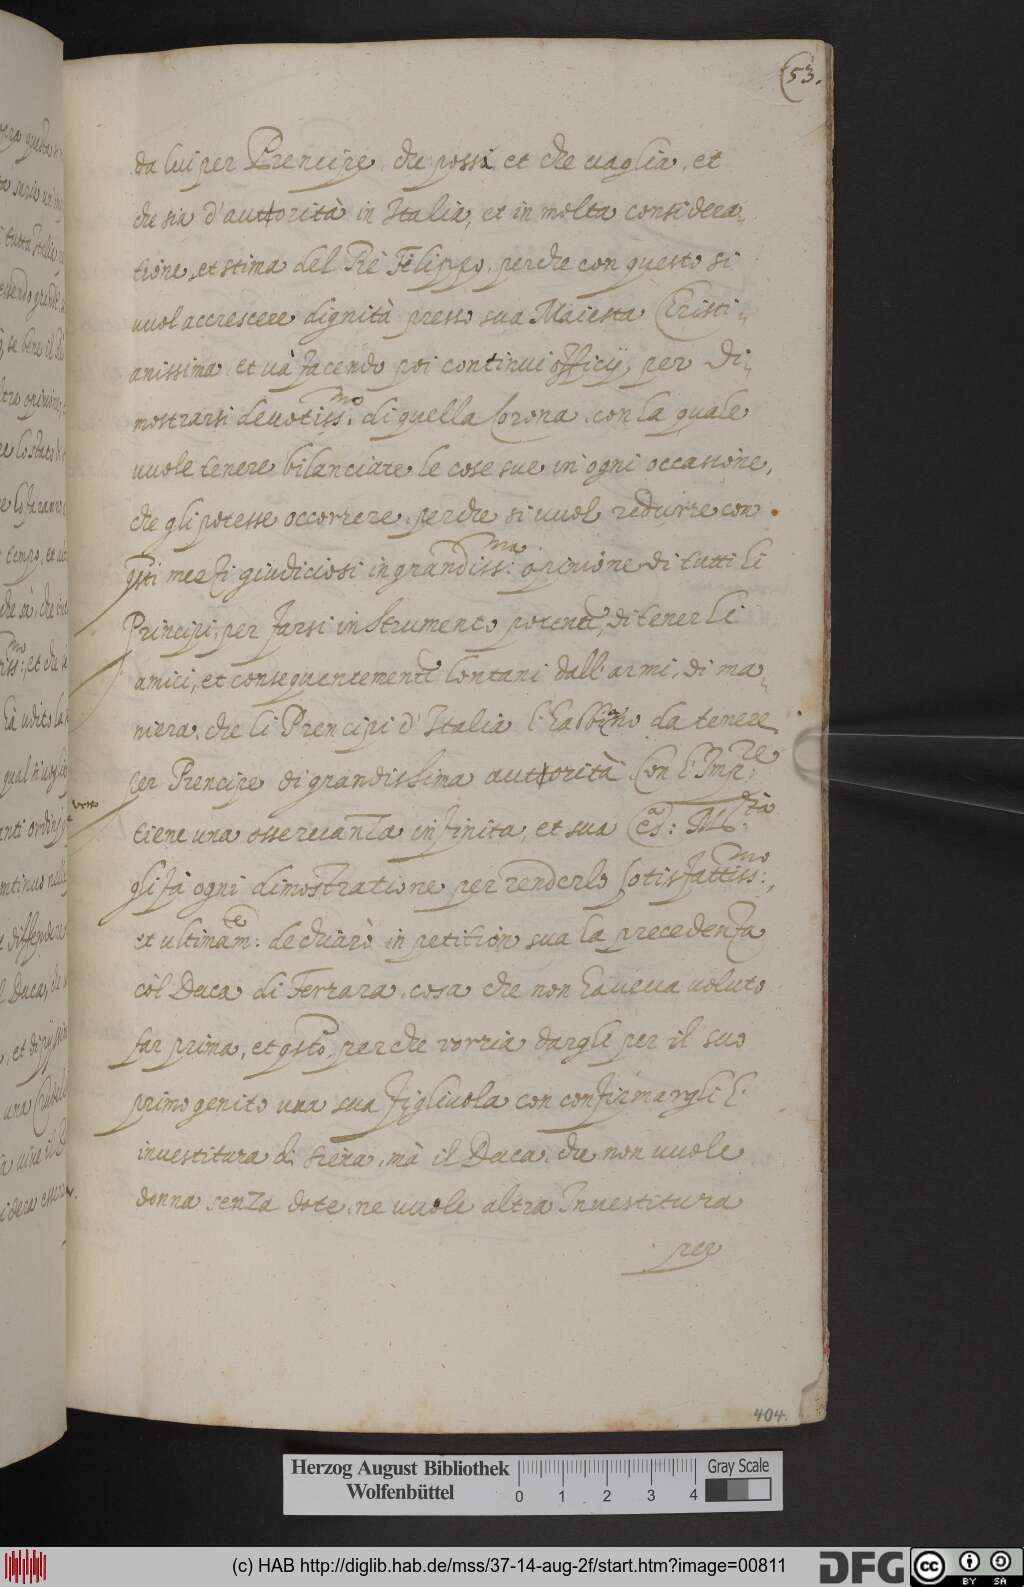 53.
da lui per Prencipe, che possi et che vaglia, et
che sia d'auttorità in Italia, et in molta considera-
tione, et stima del Rè Filippo, perche con questo si
vuol accrescere dignità presso sua Maiesta Cristi-
anissima et và facendo poi continui officij, per di-
mostrarsi devotiss:mo di quella Corona, con la quale
vuole tenere bilanciate le cose sue in ogni occasione,
che gli potesse occorrere, perche si vuol redurre con
qsti mezi giudiciosi in grandiss:ma opinione di tutti li
Principi, per farsi instrumento potente, di tener li
amici, et conseguentemente lontani dall'armi, di ma-
niera, che li Prencipi d'Italia l'habbino da tenere
per Prencipe di grandissima auttorità Con l'Impre:
tiene una osservanza infinita, et sua Ces:a M:tà
gli fà ogni dimostratione per renderlo sotisfattiss:mo,
et ultimam:te dechiarò in petition sua la precedenza
còl Duca di Ferrara, cosa che non haveva voluto
far prima, et qsto, perche vorria dargli per il suo
primogenito una sua figliuola con confirmargli l'
investitura di Siena, mà il Duca, che non vuole
donna senza dote, ne vuole altra Investitura
per
404.
Herzog August Bibliothek
Wolfenbüttel
0 1 2 3 4
Gray Scale
(c) HAB http://diglib.hab.de/mss/37-14-aug-2f/start.htm?image=00811
DFG
cc BY SA